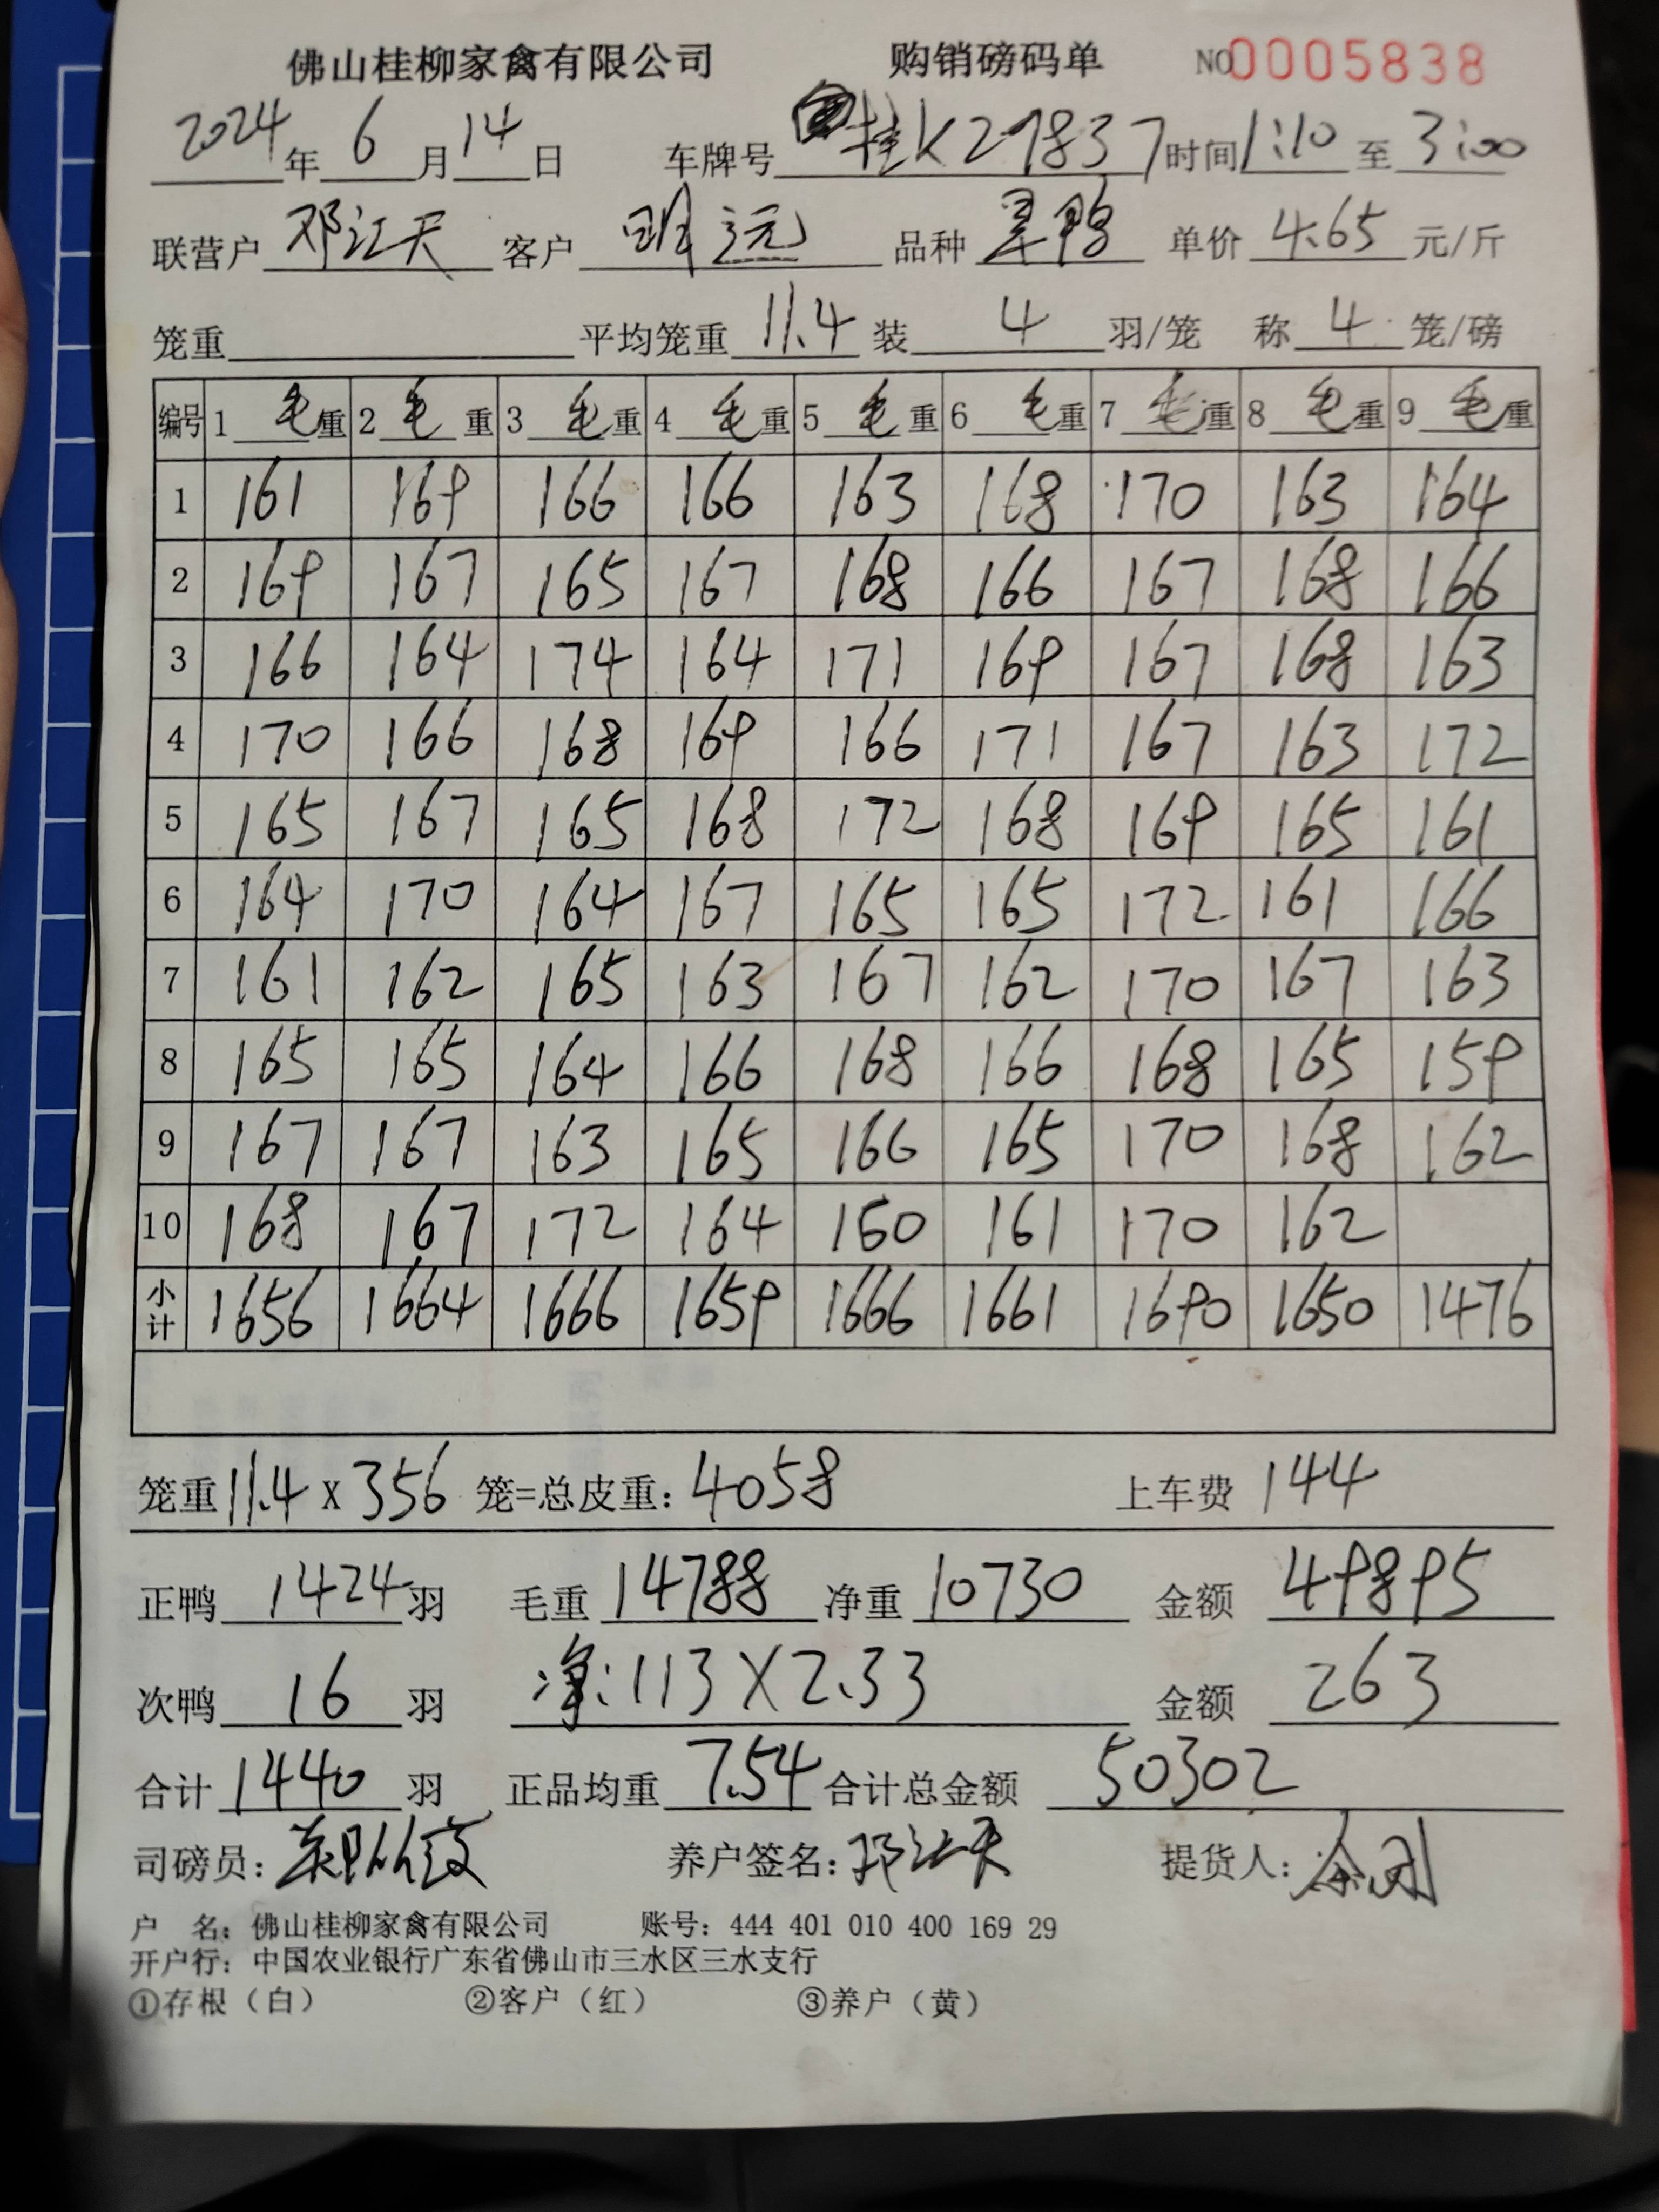 佛山桂柳家禽有限公司 购销磅码单 NO0005838
2024年6月14日 车牌号 桂K27837 时间1:10至3:00
联营户 邓江天 客户 明远 品种 单价 4.65 元/斤
笼重 平均笼重 11.4 装 4 羽/笼 称 4 笼/磅
编号 1 毛重 2 毛重 3 毛重 4 毛重 5 毛重 6 毛重 7 毛重 8 毛重 9 毛重
1 161 169 166 166 163 168 170 163 164
2 169 167 165 167 168 166 167 168 166
3 166 164 174 164 171 169 167 168 163
4 170 166 168 169 166 171 167 163 172
5 165 167 165 168 172 168 169 165 161
6 164 170 164 167 165 165 172 161 166
7 161 162 165 163 167 162 170 167 163
8 165 165 164 166 168 166 168 165 159
9 167 167 163 165 166 165 170 168 162
10 168 167 172 164 160 161 170 162
小计 1656 1664 1666 1659 1666 1661 1690 1650 1476
笼重11.4 x 356 笼=总皮重: 4058 上车费 144
正鸭 1424 羽 毛重 14788 净重 10730 金额 49895
次鸭 16 羽 净: 113 X 2.33 金额 263
合计 1440 羽 正品均重 7.54 合计总金额 50302
司磅员: 养户签名: 邓江天 提货人:
户 名: 佛山桂柳家禽有限公司 账号: 444 401 010 400 169 29
开户行: 中国农业银行广东省佛山市三水区三水支行
①存根（白） ②客户（红） ③养户（黄）